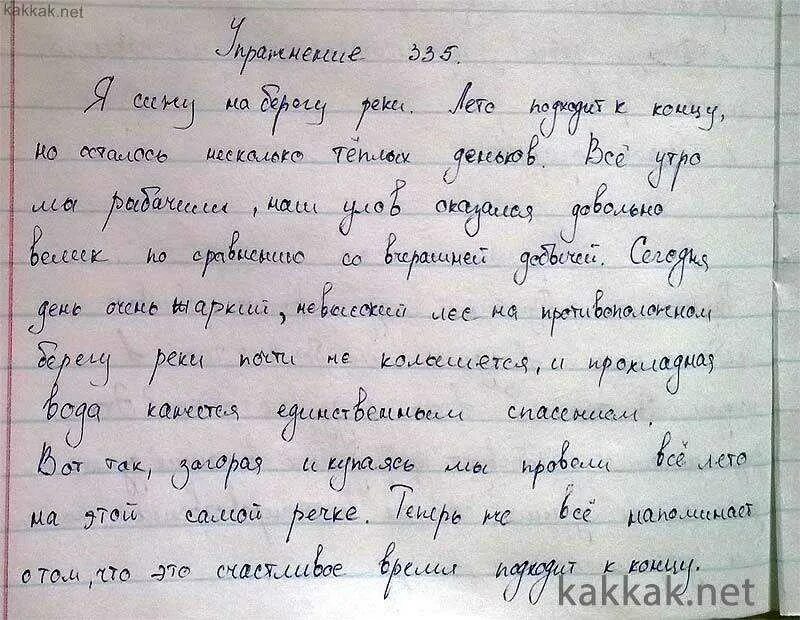 kakkak.net
Упражнение 335.
Я сижу на берегу реки. Лето подходит к концу,
но осталось несколько тёплых деньков. Всё утро
мы рыбачили, наш улов оказался довольно
велик по сравнению со вчерашней добычей. Сегодня
день очень жаркий, невысокий лес на противоположном
берегу реки почти не колышется, и прохладная
вода кажется единственным спасением.
Вот так, загорая и купаясь мы провели всё лето
на этой самой речке. Теперь же всё напоминает
о том, что это счастливое время подходит к концу.
kakkak.net